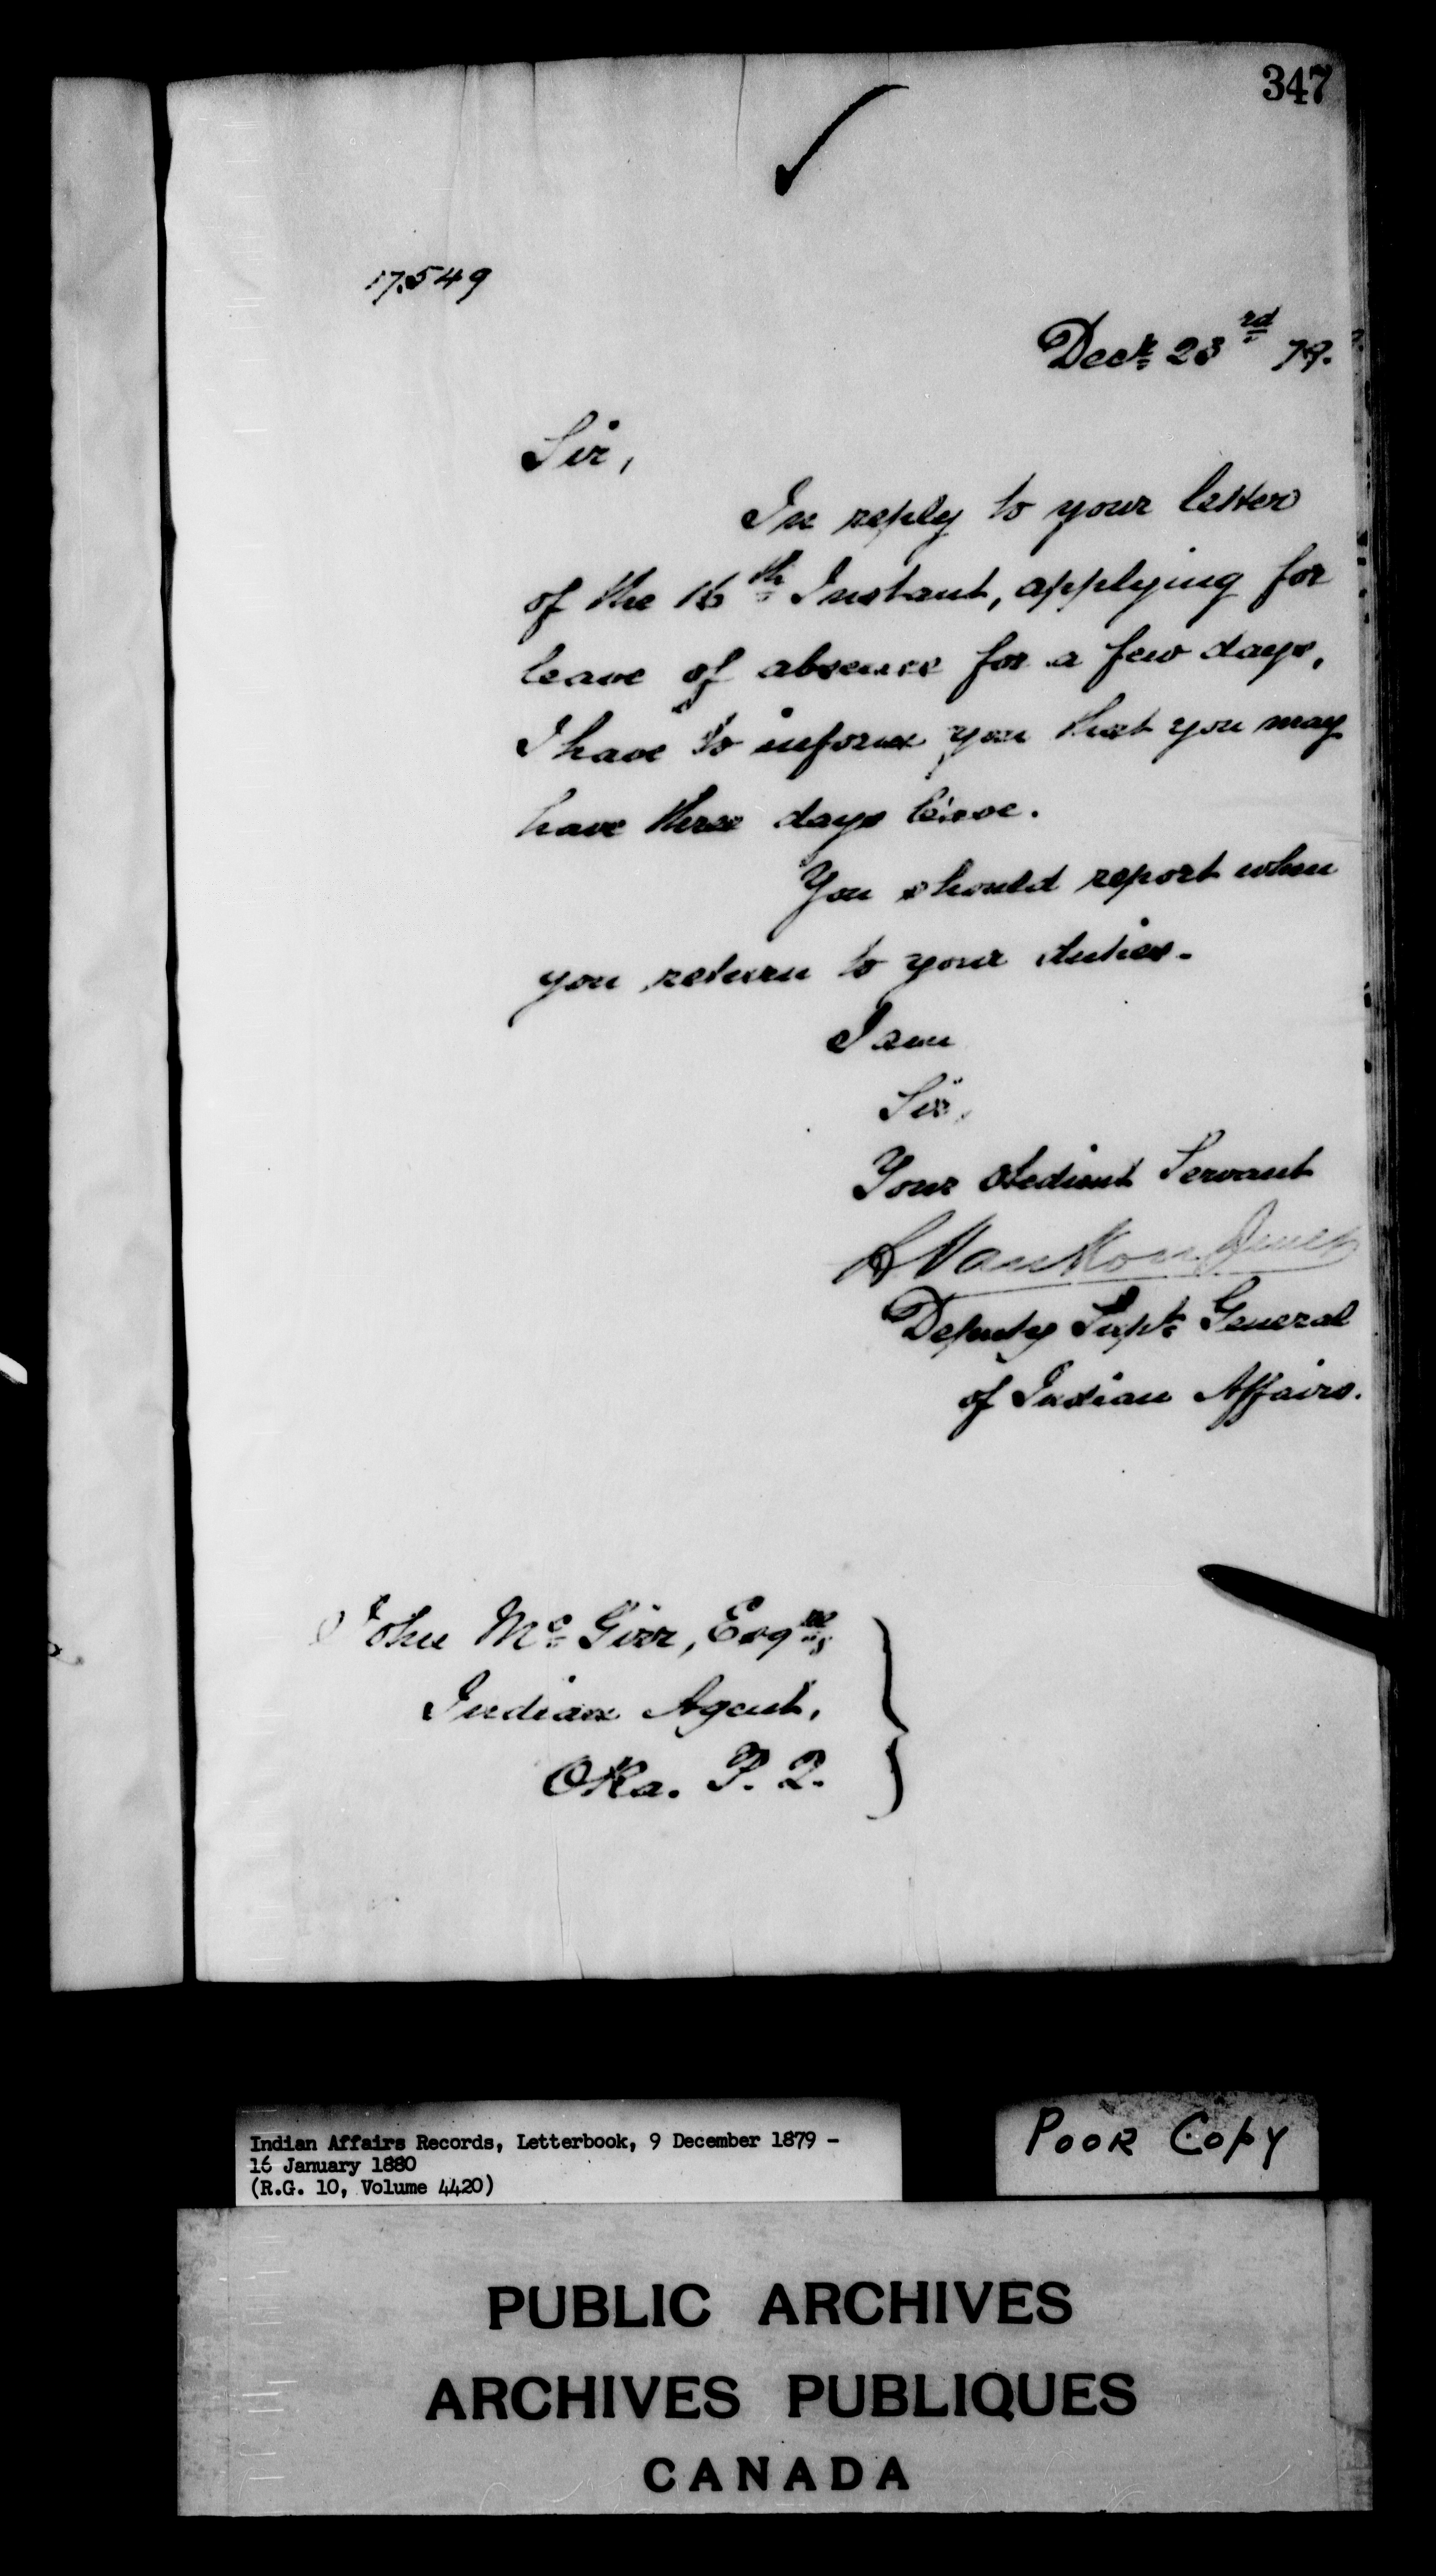 347
17.549
Decr 23rd 79.
Sir,
In reply to your letter
of the 16th Instant, applying for
leave of absence for a few days,
I have to inform you that you may
have three days leave.
You should report when
you return to your duties.
I am
Sir,
Your obedient Servant
L VanKoughnet
Deputy Supt. General
of Indian Affairs.
John Mc Girr, Esqre,
Indian Agent,
Oka. P. Q.
Indian Affairs Records, Letterbook, 9 December 1879 -
16 January 1880
(R.G. 10, Volume 4420)
POOR COPY
PUBLIC ARCHIVES
ARCHIVES PUBLIQUES
CANADA